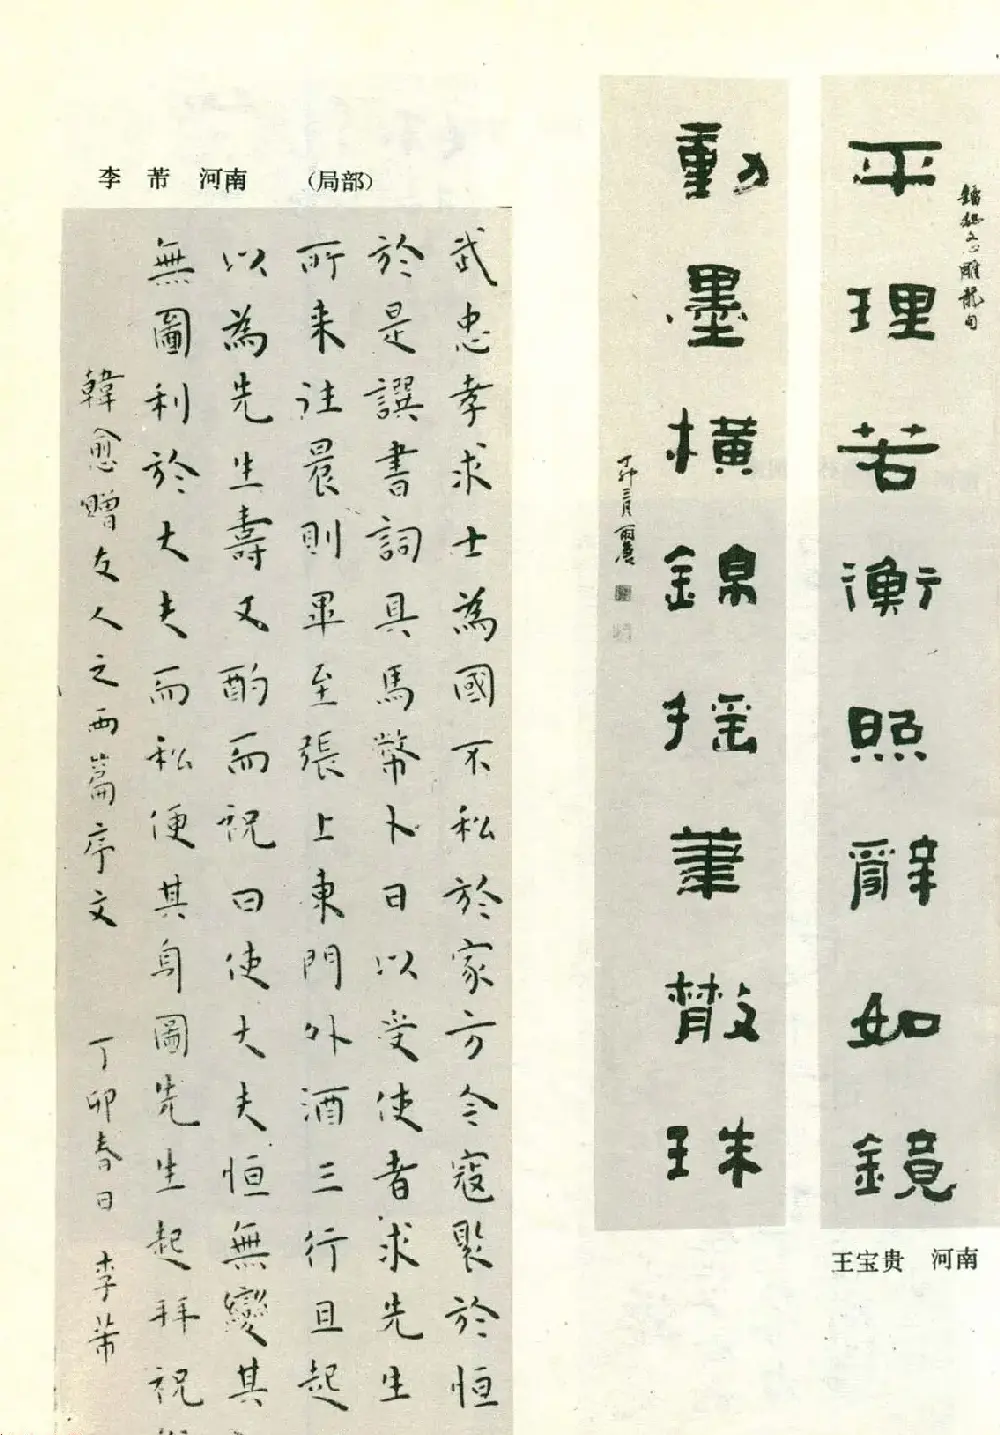 文心雕龍句
平理若衡照辭如鏡
動墨橫錦搖筆散珠
丁卯三月
王宝贵 河南
李 芾 河南 (局部)
武忠孝求士為國不私於家方今寇聚於恒
於是譔書詞具馬幣卜日以受使者求先生
所来往晨則畢至張上東門外酒三行且起
以為先生壽又酌而祝曰使大夫恒無變其
無圖利於大夫而私便其身圖先生起拜祝
韓愈贈友人之西篇序文 丁卯春日 李芾